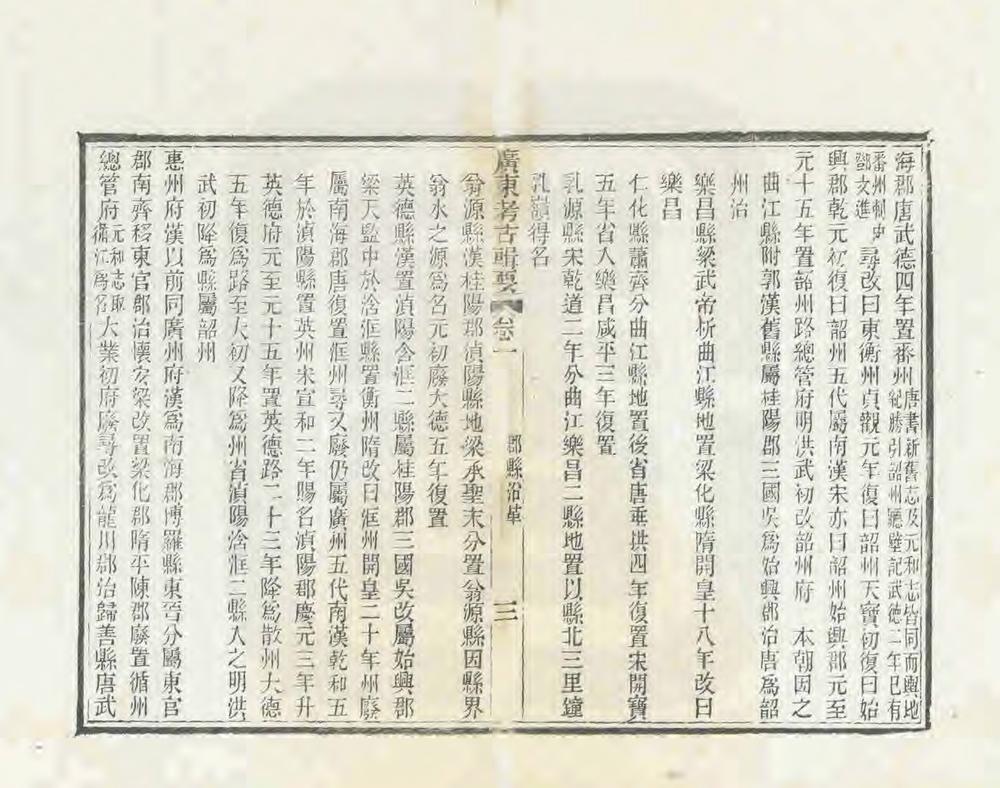 海郡唐武德四年置番州唐書新舊志及元和志皆同而輿地
紀勝引韶州廳壁記武德二年已有
番州刺史
鄧文進尋改曰東衡州貞觀元年復曰韶州天寶初復曰始
興郡乾元初復曰韶州五代屬南漢宋亦曰韶州始興郡元至
元十五年置韶州路總管府明洪武初改韶州府 本朝因之
曲江縣附郭漢舊縣屬桂陽郡三國吳爲始興郡治唐爲韶
州治
樂昌縣梁武帝析曲江縣地置梁化縣隋開皇十八年改曰
樂昌
仁化縣蕭齊分曲江縣地置後省唐垂拱四年復置宋開寶
五年省入樂昌咸平三年復置
乳源縣宋乾道二年分曲江樂昌二縣地置以縣北三里鐘
乳嶺得名
廣東考古輯要 卷一 郡縣沿革 三
翁源縣漢桂陽郡湞陽縣地梁承聖末分置翁源縣因縣界
翁水之源爲名元初廢大德五年復置
英德縣漢置湞陽含洭二縣屬桂陽郡三國吳改屬始興郡
梁天監中於浛洭縣置衡州隋改曰洭州開皇二十年州廢
屬南海郡唐復置洭州尋又廢仍屬廣州五代南漢乾和五
年於湞陽縣置英州宋宣和二年賜名湞陽郡慶元三年升
英德府元至元十五年置英德路二十三年降爲散州大德
五年復爲路至大初又降爲州省湞陽浛洭二縣入之明洪
武初降爲縣屬韶州
惠州府漢以前同廣州府漢爲南海郡博羅縣東晉分屬東官
郡南齊移東官郡治懷安梁改置梁化郡隋平陳郡廢置循州
總管府元和志取
循江爲名大業初府廢尋改爲龍川郡治歸善縣唐武